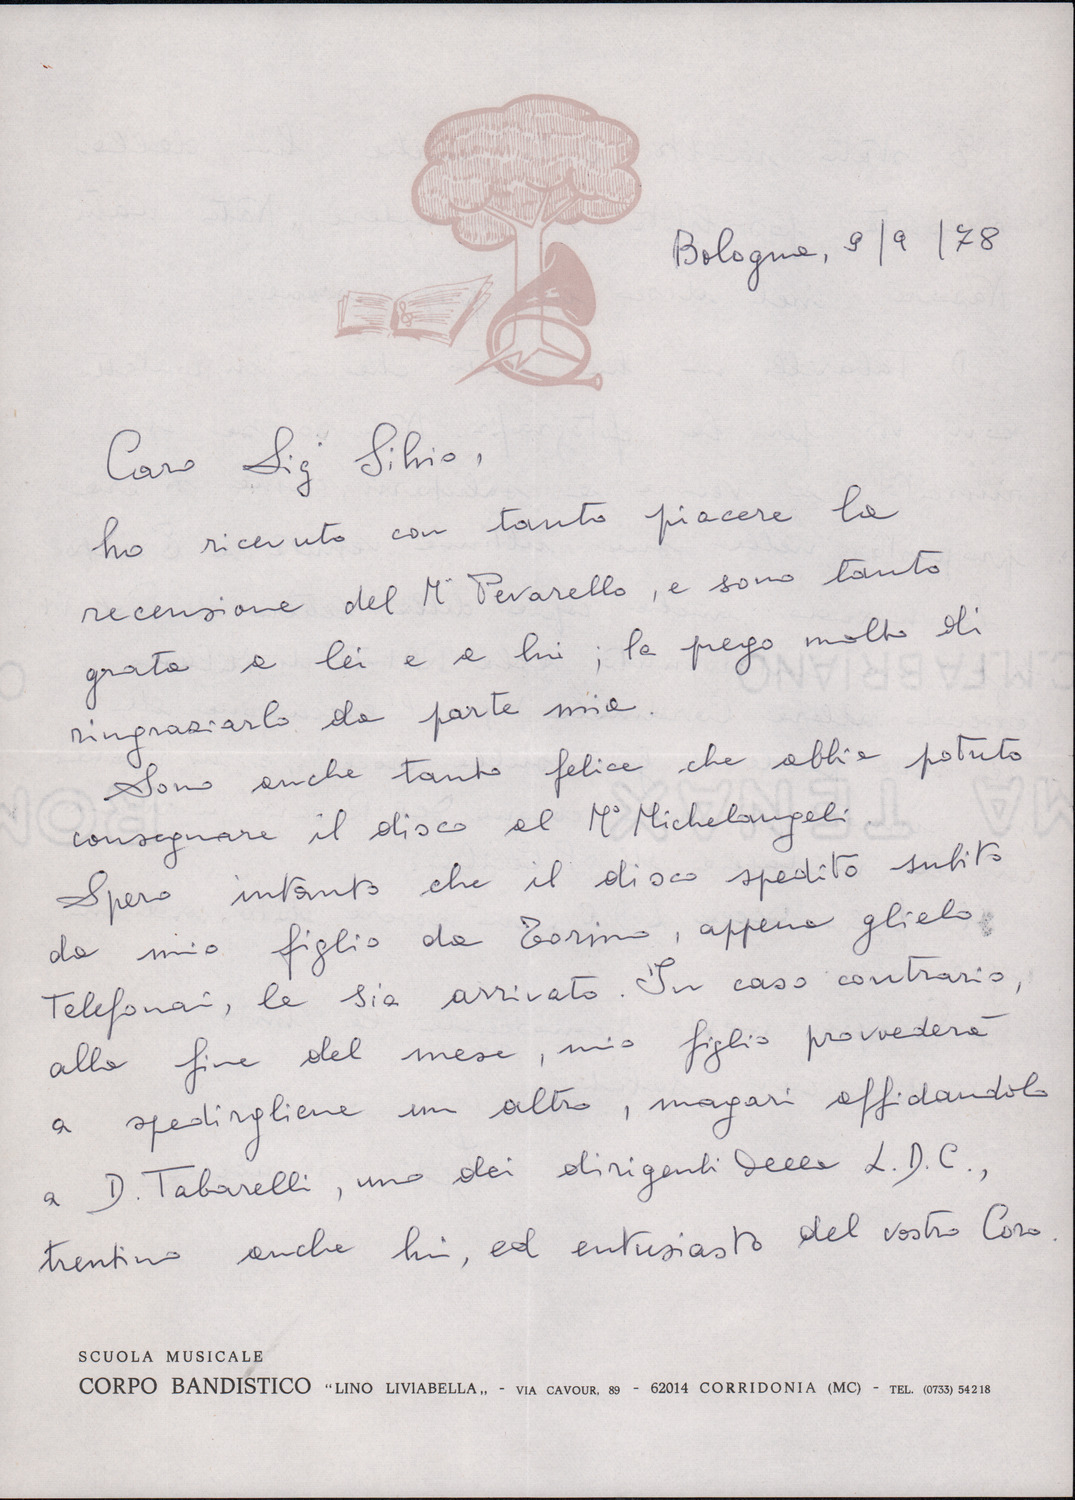 Bologna, 9/9/78
Caro Sigʳ Silvio,
ho ricevuto con tanto piacere la
recensione del Mº Pevarello, e sono tanto
grata a lei e a lui; la prego molto di
ringraziarlo da parte mia.
Sono anche tanto felice che abbia potuto
consegnare il disco al Mº Michelangeli.
Spero intanto che il disco spedito subito
da mio figlio da Torino, appena glielo
telefonai, le sia arrivato. In caso contrario,
alla fine del mese, mio figlio provvederà
a spedirgliene un altro, magari affidandolo
a D. Tabarelli, uno dei dirigenti della L.D.C.,
trentino anche lui, ed entusiasta del vostro Coro.
SCUOLA MUSICALE
CORPO BANDISTICO "LINO LIVIABELLA„ - VIA CAVOUR, 89 - 62014 CORRIDONIA (MC) - TEL. (0733) 54218